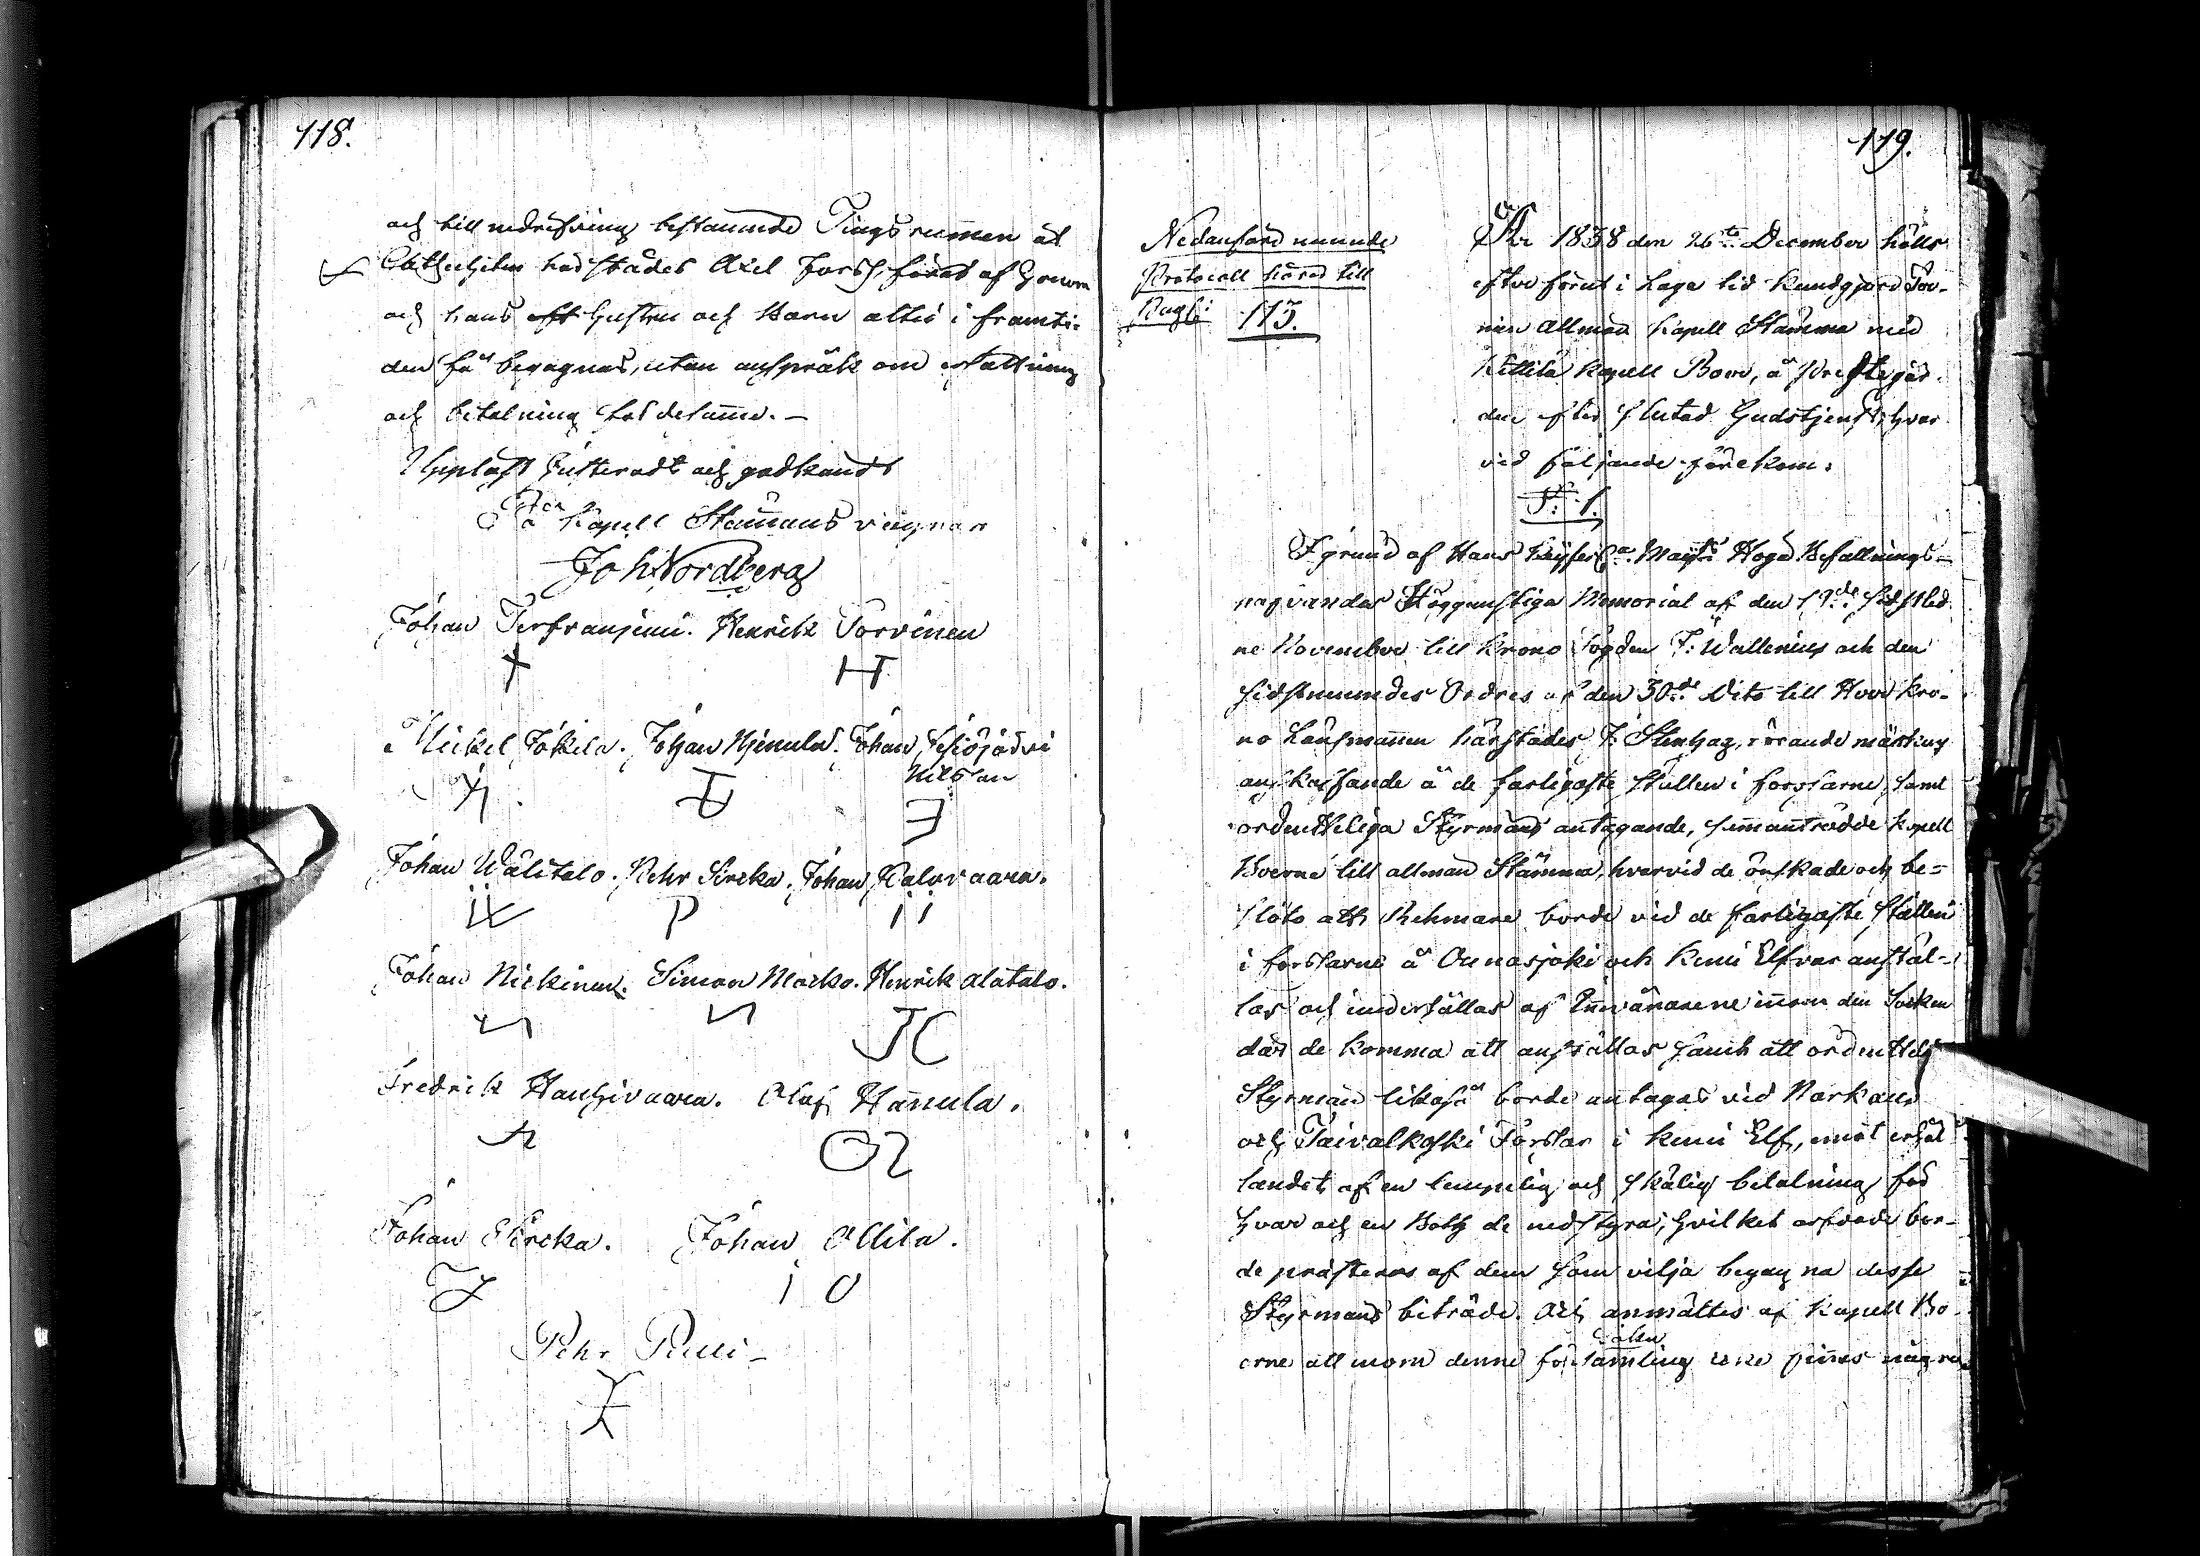 118.
och till inredsning bestämde Tingsrummen at
härstädes Axel Forss, förat af Honom
och hans Hustru och Barn altid i framti-
den få begagnas, utan anspråk om ersättning
och betalning for desamma. –
Uppläst Justeradt och godkändt
På Kapell Stämans vägnar
Joh Nordberg
Johan Henrik Torvinen
Mickel Jokela. Johan Njemela. Johan
Nilsson
Johan Wälitalo. Pehr Sireka. Johan Kalovaara.
Johan Nickinen. Simon Marko. Henrik Alatalo.
Fredrik Hanhivaara. Olof Hannula.
Johan Sireka. Johan Ollila.
Pehr
119.
Nedanföre nämnde
Protocoll hörer till
Pag: 113.
År 1838 den 26te December hölls
efter förut i Laga tid kundgjord Sou-
nen Allmän Kapell Stämma med
Kittilä Kapell Boer, å Prestegår-
den efter slutad Gudstjenst, hvar
vid följande förekom:
§: 1.
I grund af Hans Kejserl:a Maj:ts Höga Befallnings-
hafvandes Höggunstiga Memorial af den 19de sidstled-
ne November till Krono Fogden F: Wallenius och den
sidstnämndes Ordres af den 30de Dito till Herr Kro-
no Länsmannen härstädes J: Stenhag, rörande märkens
anskaffande å de farligaste ställen i forssarne, samt
ordentteliga Styrmäns antagande, sammanträdde Kapell
Boerne till allmän Stämma, hvarvid de önskade och be-
slöto att Rehmare borde vid de farligaste ställen
i forssarne å Ounasjoki och Kemi Elfvar anstäl-
las och underhållas af Innevånarene inom den Socken
där de komma att anställas samt att ordenttelig
Styrman likaså borde antagas vid Narkaus
och Taivalkoski Forssar i Kemi Elf, mot erhål-
landet af en lämpelig och skälig betalning för
hvar och en Båth de nedstyra; hvilket arfvode bor-
de presteras af dem som vilja begagna desse
Styrmäns biträde. Och anmältes af Kapell Bo-
erne att inom denne församling icke finnes några